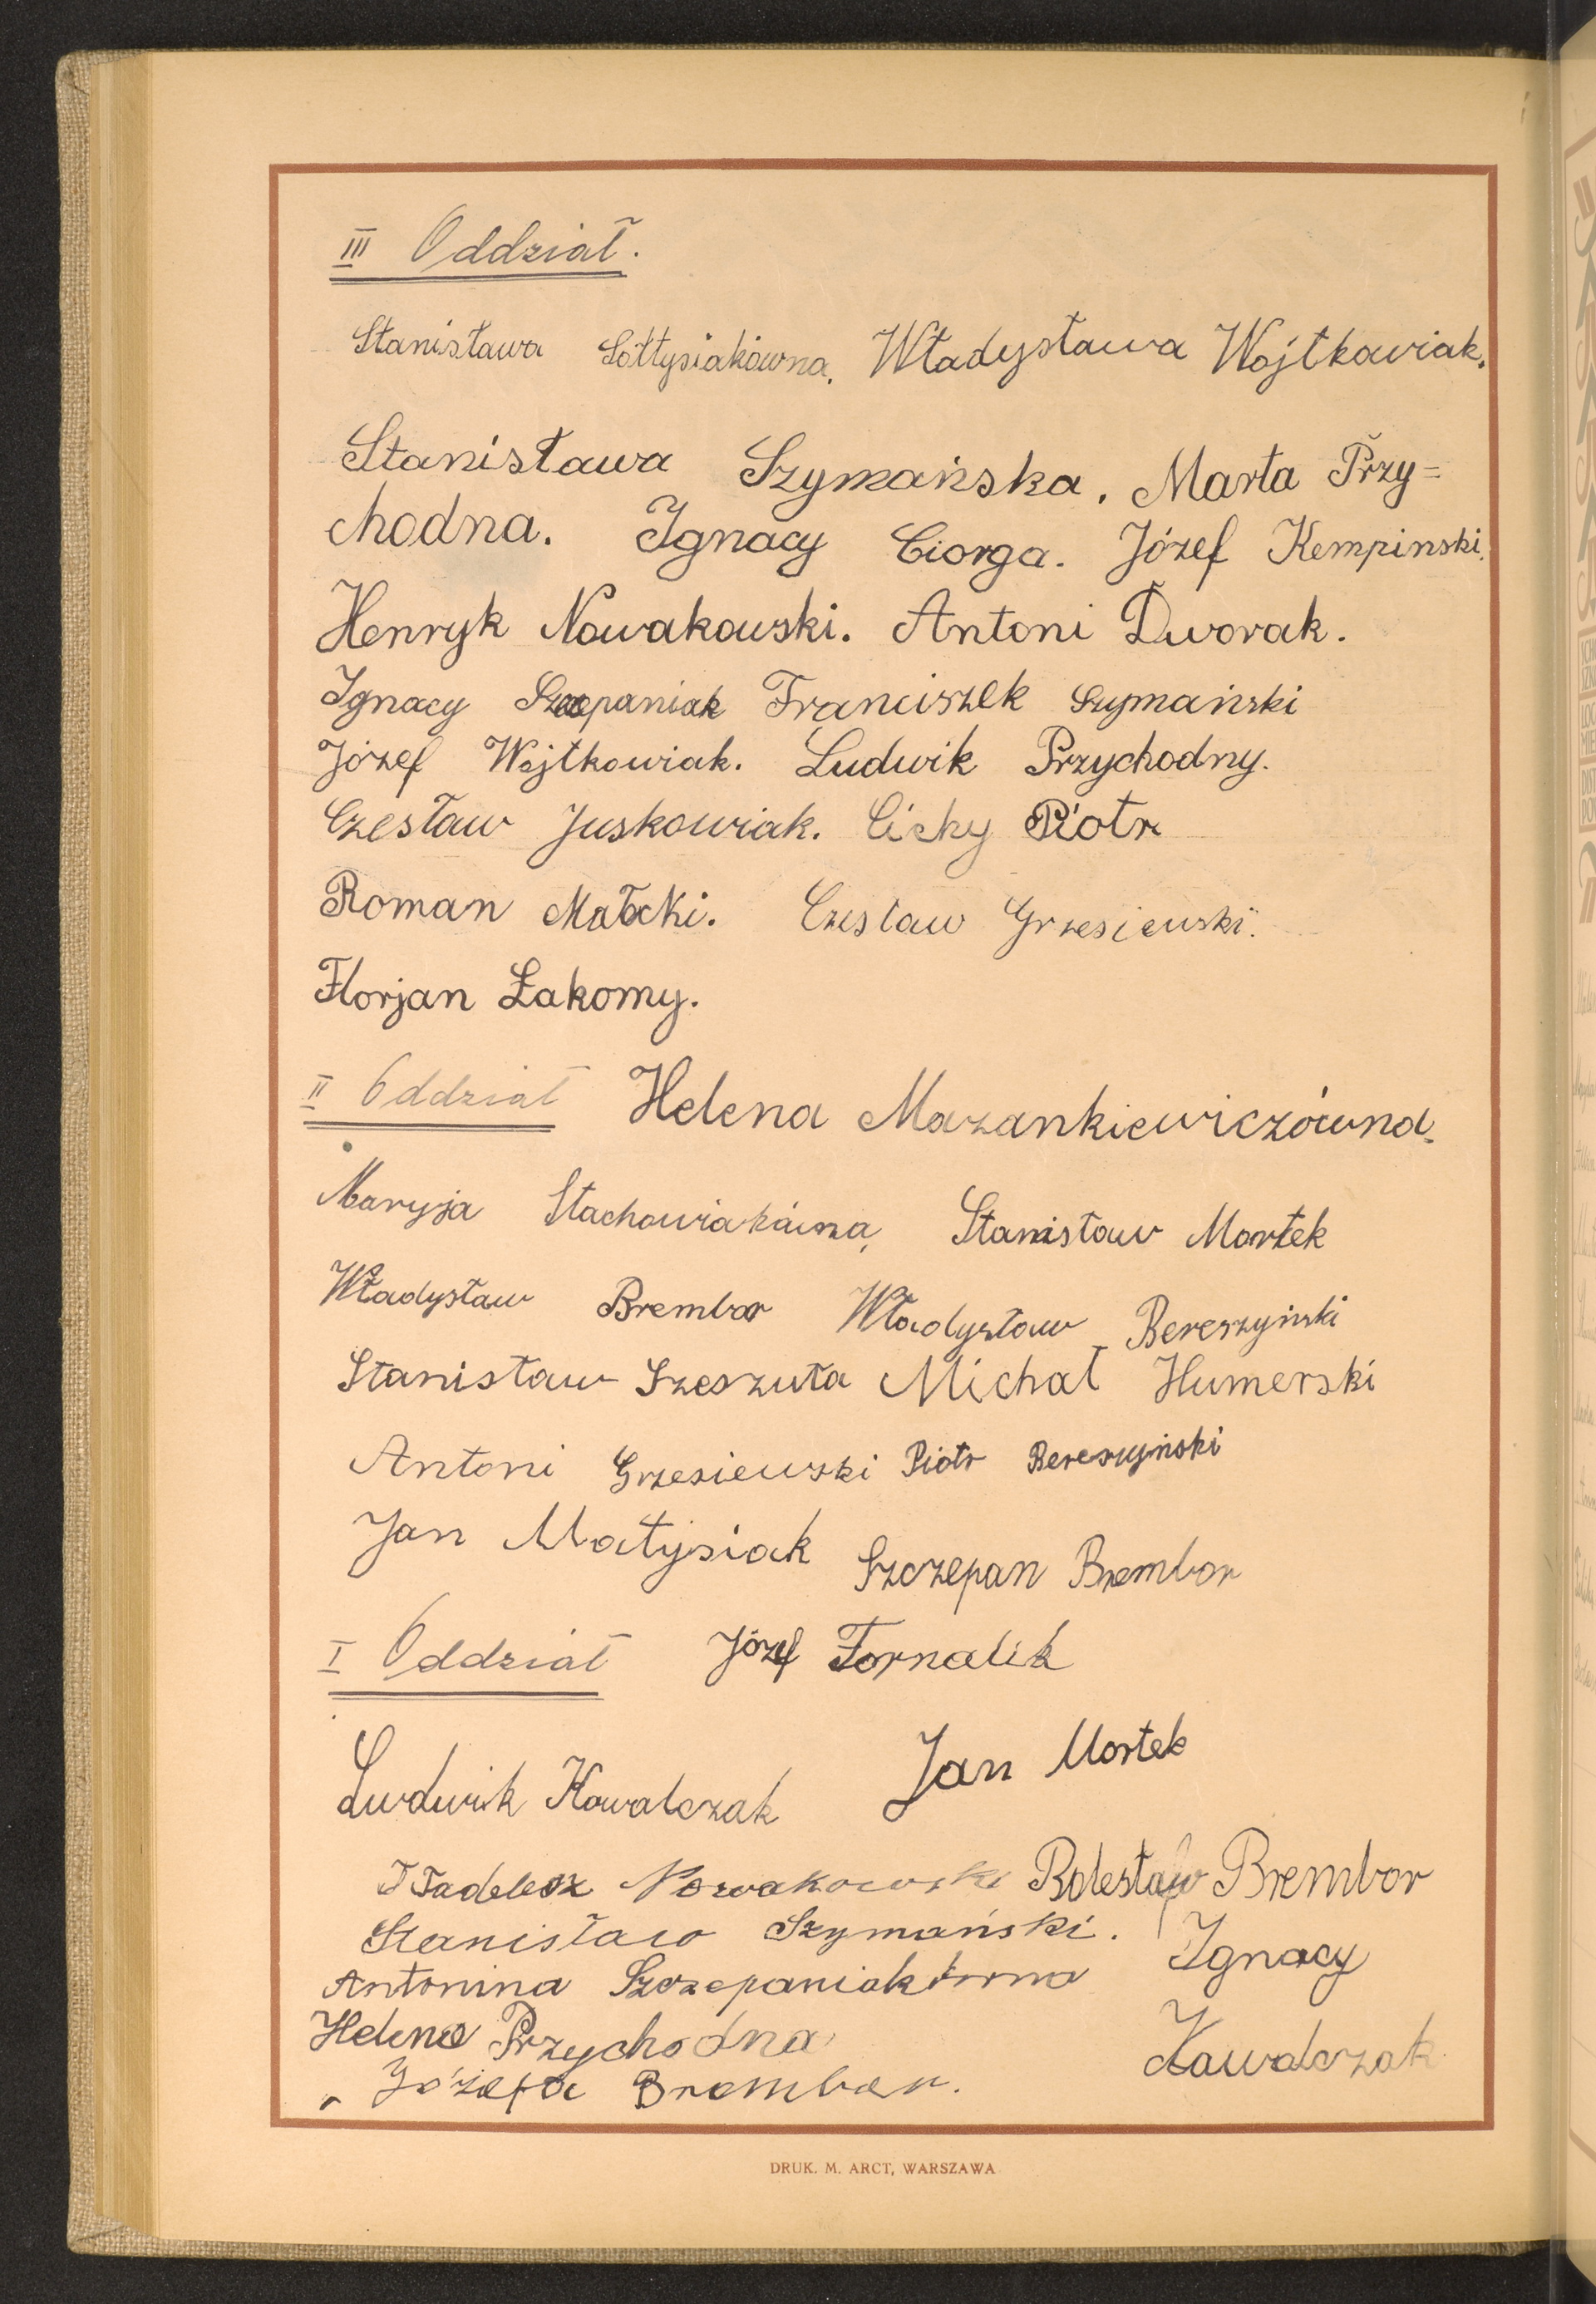 III Oddział.
Stanisława Sółtysiakówna. Władysława Wojtkowiak.
Stanisława Szymańska. Marta Przy=
chodna. Ignacy Ciorga. Józef Kempinski.
Henryk Nowakowski. Antoni Dworak.
Ignacy Szczepaniak Franciszek Szymański
Józef Wojtkowiak. Ludwik Przychodny.
Czesław Juskowiak. Cichy Piotr
Roman Małecki. Czesław Grzesiewski.
Florjan Łakomy.
II Oddział Helena Mazankiewiczówna.
Maryja Stachowiakówna, Stanisław Mortek
Władysław Brembor Władysław Bereszyński
Stanisław Szeszuła Michał Humerski
Antoni Grzesiewski Piotr Bereszyński
Jan Matysiak Szczepan Brembor
I Oddział Józef Fornalik
Ludwik Kowalczak Jan Mortek
Nowakowski Bolesław Brembor
Stanisław Szymański. Ignacy
Antonina
Helena Przychodna Kawalczak
Józefa Brembor.
DRUK. M. ARCT, WARSZAWA